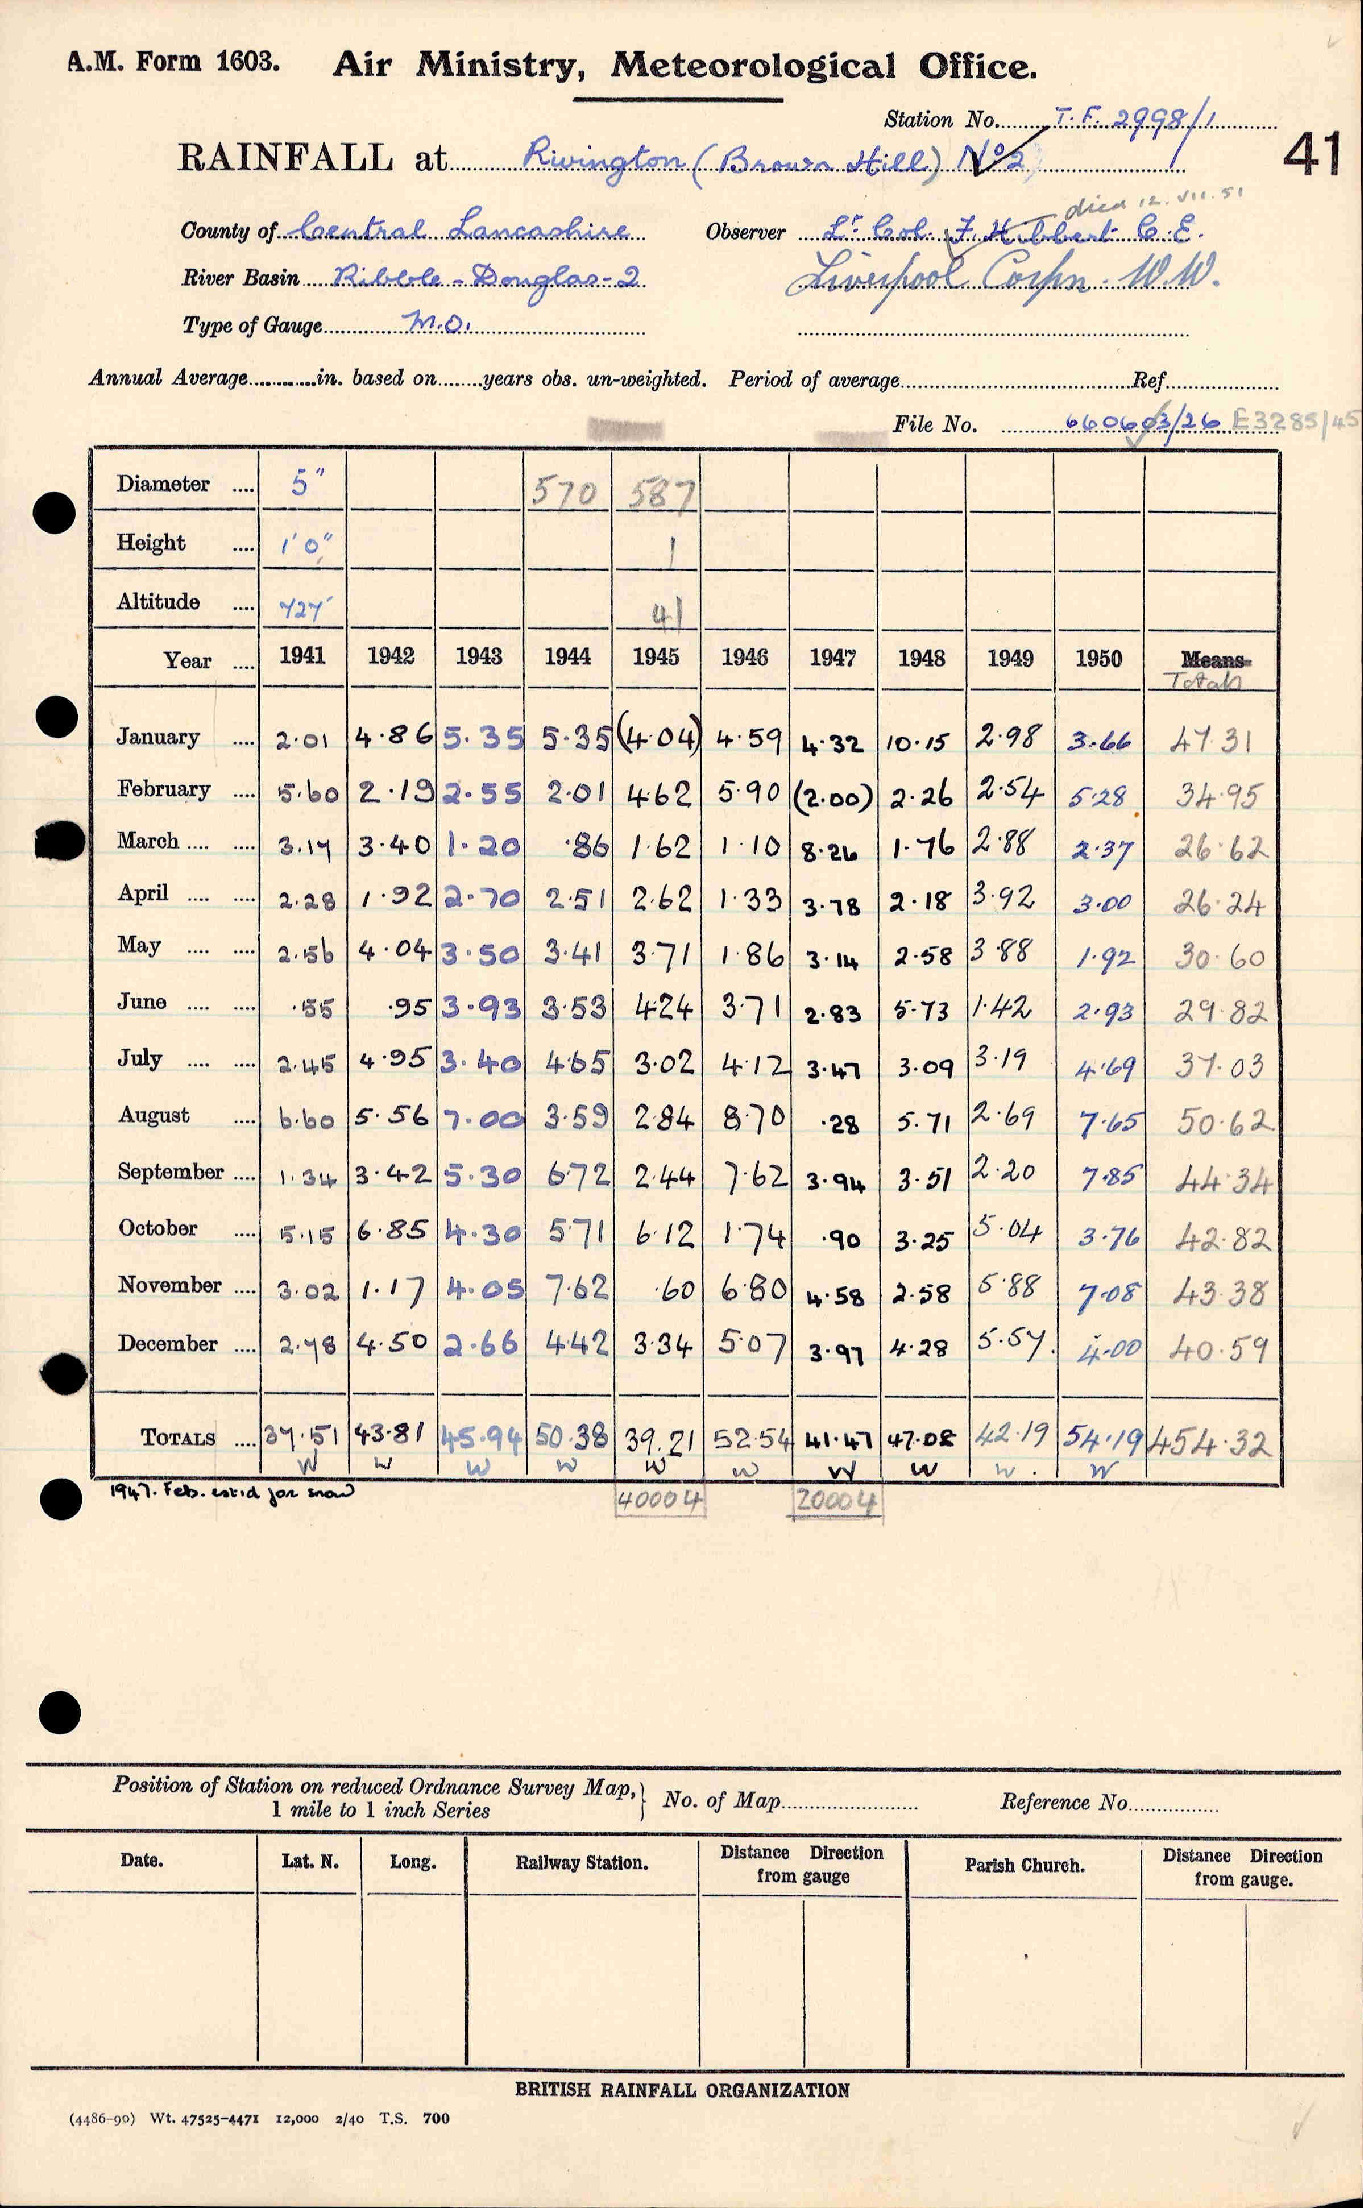 A.M. Form 1603. Air Ministry, Meteorological Office.
Station No. T.F. 2998/1
RAINFALL at Rivington (Brown Hill) No 2 41
died 12.VII.51
County of Central Lancashire Observer Lt. Col. F. Hibbert C.E.
River Basin Ribble-Douglas-2 Liverpool Corpn. W.W.
Type of Gauge M.O.
Annual Average in. based on years obs. un-weighted. Period of average Ref
File No. 660603/26 E3285/45
Diameter 5" 570 587
Height 1'0" 1
Altitude 727' 41
Year 1941 1942 1943 1944 1945 1946 1947 1948 1949 1950 Means
Totals
January 2.01 4.86 5.35 5.35 (4.04) 4.59 4.32 10.15 2.98 3.66 47.31
February 5.60 2.19 2.55 2.01 4.62 5.90 (2.00) 2.26 2.54 5.28 34.95
March 3.17 3.40 1.20 .86 1.62 1.10 8.26 1.76 2.88 2.37 26.62
April 2.28 1.92 2.70 2.51 2.62 1.33 3.78 2.18 3.92 3.00 26.24
May 2.56 4.04 3.50 3.41 3.71 1.86 3.14 2.58 3.88 1.92 30.60
June .55 .95 3.93 3.53 4.24 3.71 2.83 5.73 1.42 2.93 29.82
July 2.45 4.95 3.40 4.65 3.02 4.12 3.47 3.09 3.19 4.69 37.03
August 6.60 5.56 7.00 3.59 2.84 8.70 .28 5.71 2.69 7.65 50.62
September 1.34 3.42 5.30 6.72 2.44 7.62 3.94 3.51 2.20 7.85 44.34
October 5.15 6.85 4.30 5.71 6.12 1.74 .90 3.25 5.04 3.76 42.82
November 3.02 1.17 4.05 7.62 .60 6.80 4.58 2.58 5.88 7.08 43.38
December 2.78 4.50 2.66 4.42 3.34 5.07 3.97 4.28 5.57 4.00 40.59
TOTALS 37.51 43.81 45.94 50.38 39.21 52.54 41.47 47.08 42.19 54.19 454.32
W W W W W W W W W W
1947. Feb. est'd for snow 40004 20004
Position of Station on reduced Ordnance Survey Map, } No. of Map Reference No.
1 mile to 1 inch Series
Date. Lat. N. Long. Railway Station. Distance Direction from gauge Parish Church. Distance Direction from gauge.
BRITISH RAINFALL ORGANIZATION
(4486-90) Wt. 47525-4471 12,000 2/40 T.S. 700